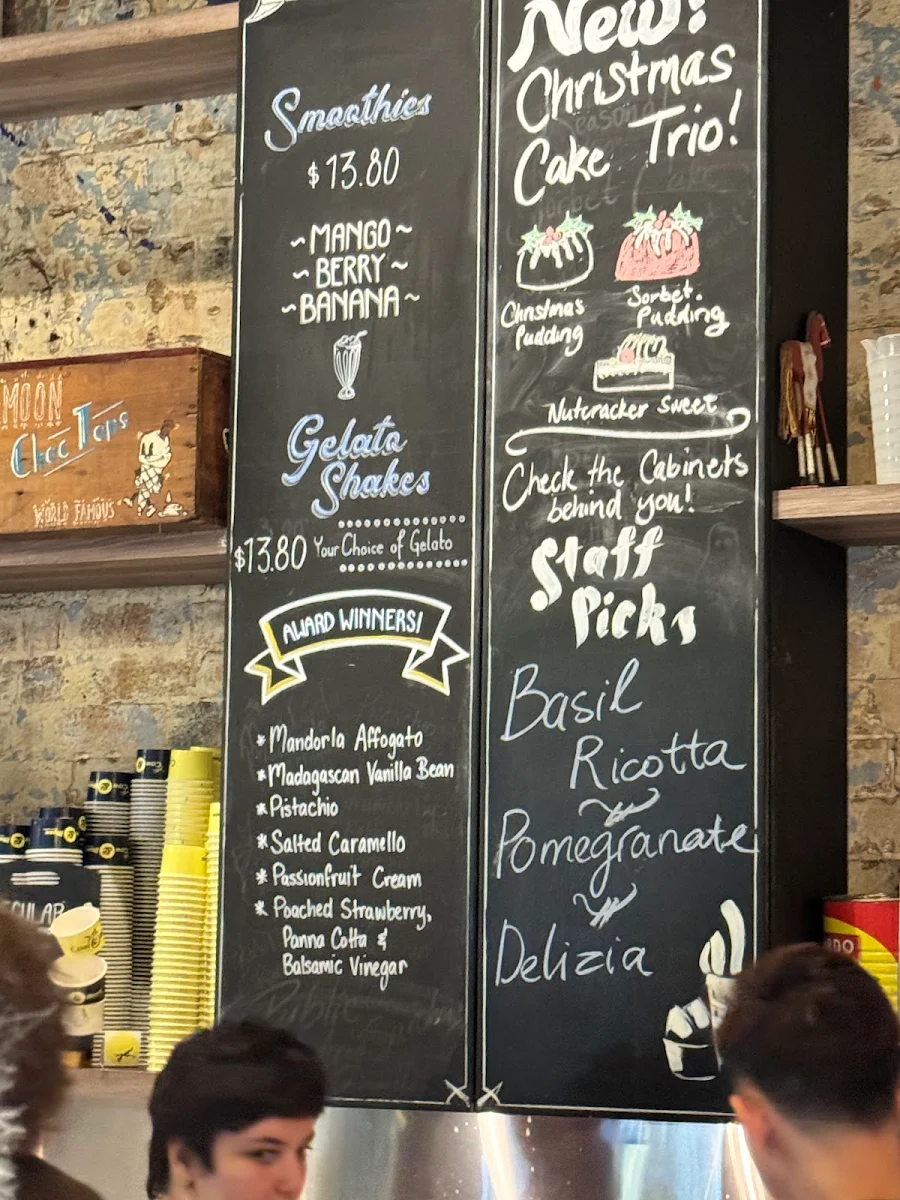 Smoothies
$13.80
~MANGO~
~BERRY~
~BANANA~
Gelato
Shakes
$13.80 Your Choice of Gelato
AWARD WINNERS!
* Mandorla Affogato
* Madagascan Vanilla Bean
* Pistachio
* Salted Caramello
* Passionfruit Cream
* Poached Strawberry,
Panna Cotta &
Balsamic Vinegar
New!
Christmas
Cake Trio!
Christmas
Pudding
Sorbet.
Pudding
Nutcracker Sweet
Check the Cabinets
behind you!
Staff
Picks
Basil
Ricotta
Pomegranate
Delizia
MOON
Choc Tops
WORLD FAMOUS